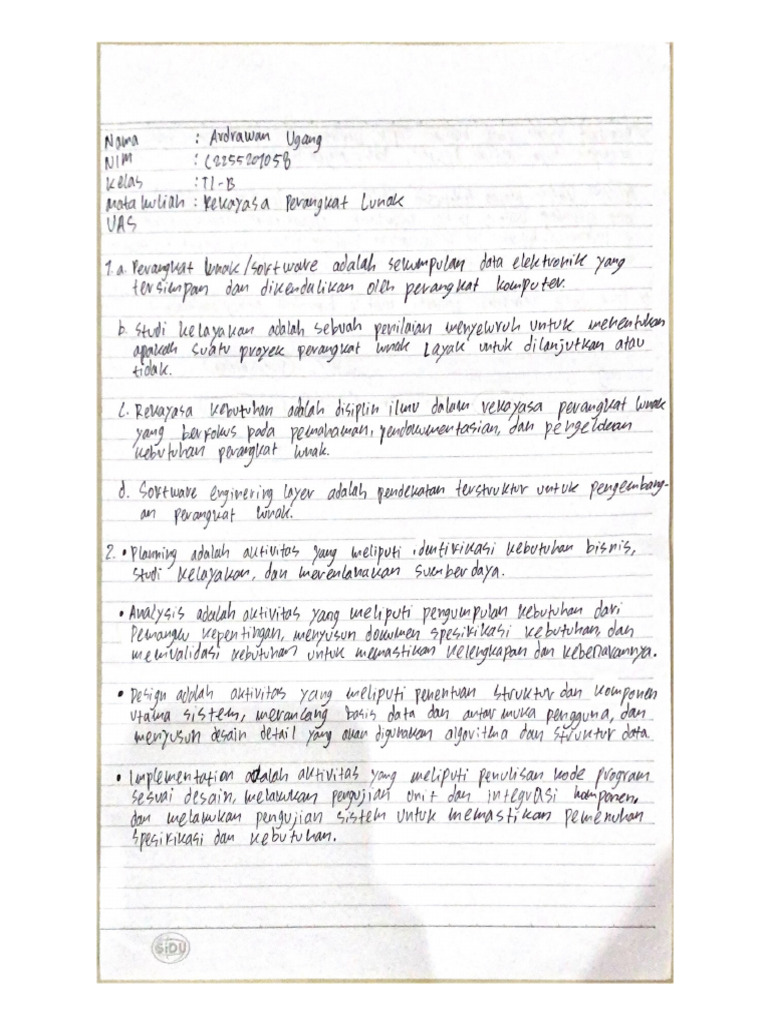 Nama : Ardrawan Ugang
NIM : C2255201058
Kelas : TI-B
Mata kuliah : Rekayasa Perangkat Lunak
UAS
1. a. Perangkat lunak/software adalah sekumpulan data elektronik yang
tersimpan dan dikendalikan oleh perangkat komputer.
b. Studi kelayakan adalah sebuah penilaian menyeluruh untuk menentukan
apakah suatu proyek perangkat lunak layak untuk dilanjutkan atau
tidak.
c. Rekayasa kebutuhan adalah disiplin ilmu dalam rekayasa perangkat lunak
yang berfokus pada pemahaman, pendokumentasian, dan pengelolaan
kebutuhan perangkat lunak.
d. Software enginering layer adalah pendekatan terstruktur untuk pengembang-
an perangkat lunak.
2. • Planning adalah aktivitas yang meliputi identifikasi kebutuhan bisnis,
studi kelayakan, dan merencanakan sumber daya.
• Analysis adalah aktivitas yang meliputi pengumpulan kebutuhan dari
Pemangku kepentingan, menyusun dokumen spesifikasi kebutuhan, dan
memvalidasi kebutuhan untuk memastikan kelengkapan dan kebenarannya.
• Design adalah aktivitas yang meliputi penentuan struktur dan komponen
utama sistem, merancang basis data dan antar muka pengguna, dan
menyusun desain detail yang akan digunakan algoritma dan struktur data
• Implementation adalah aktivitas yang meliputi penulisan kode program
sesuai desain, melakukan pengujian unit dan integrasi komponen,
dan melakukan pengujian sistem untuk memastikan pemenuhan
spesifikasi dan kebutuhan.
SIDU